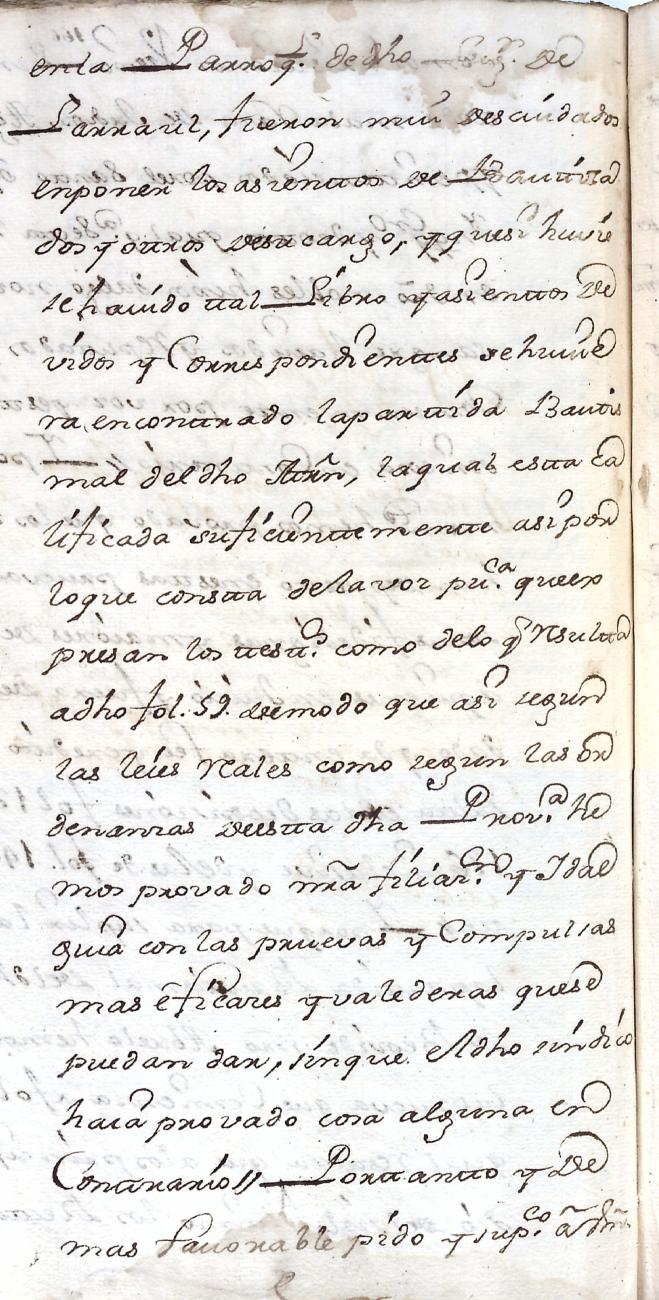 en la Parroq.l de dho Lug.r de
Larraul, fueron mui descuidados
enponer los asienttos de Bauttiza
dos y ottros desu cargo, y quesi huvie
se havido ttal Libro y asienttos de
vidos y Correspondienttes se huvie
ra encontrado lapartida Bautis
mal del dho Mrñ, laqual estta ca
lificada suficienttementte asi por
loque constta dela voz pu.ca que ex
presan los ttestt.os como delo q̃ Rsultta
adho fol. 59. demodo que asi segun
las leies Rales como segun las or
denanzas de estta dha Prov.a he
mos provado nrã filiaz.on y Idal
guia con las pruevas y Compulsas
mas eficazes y valederas quese
puedan dar, sinque el dho sindico
haia provado cosa alguna en
Conttrario // Porttantto y de
mas favorable pido y sup.co ã